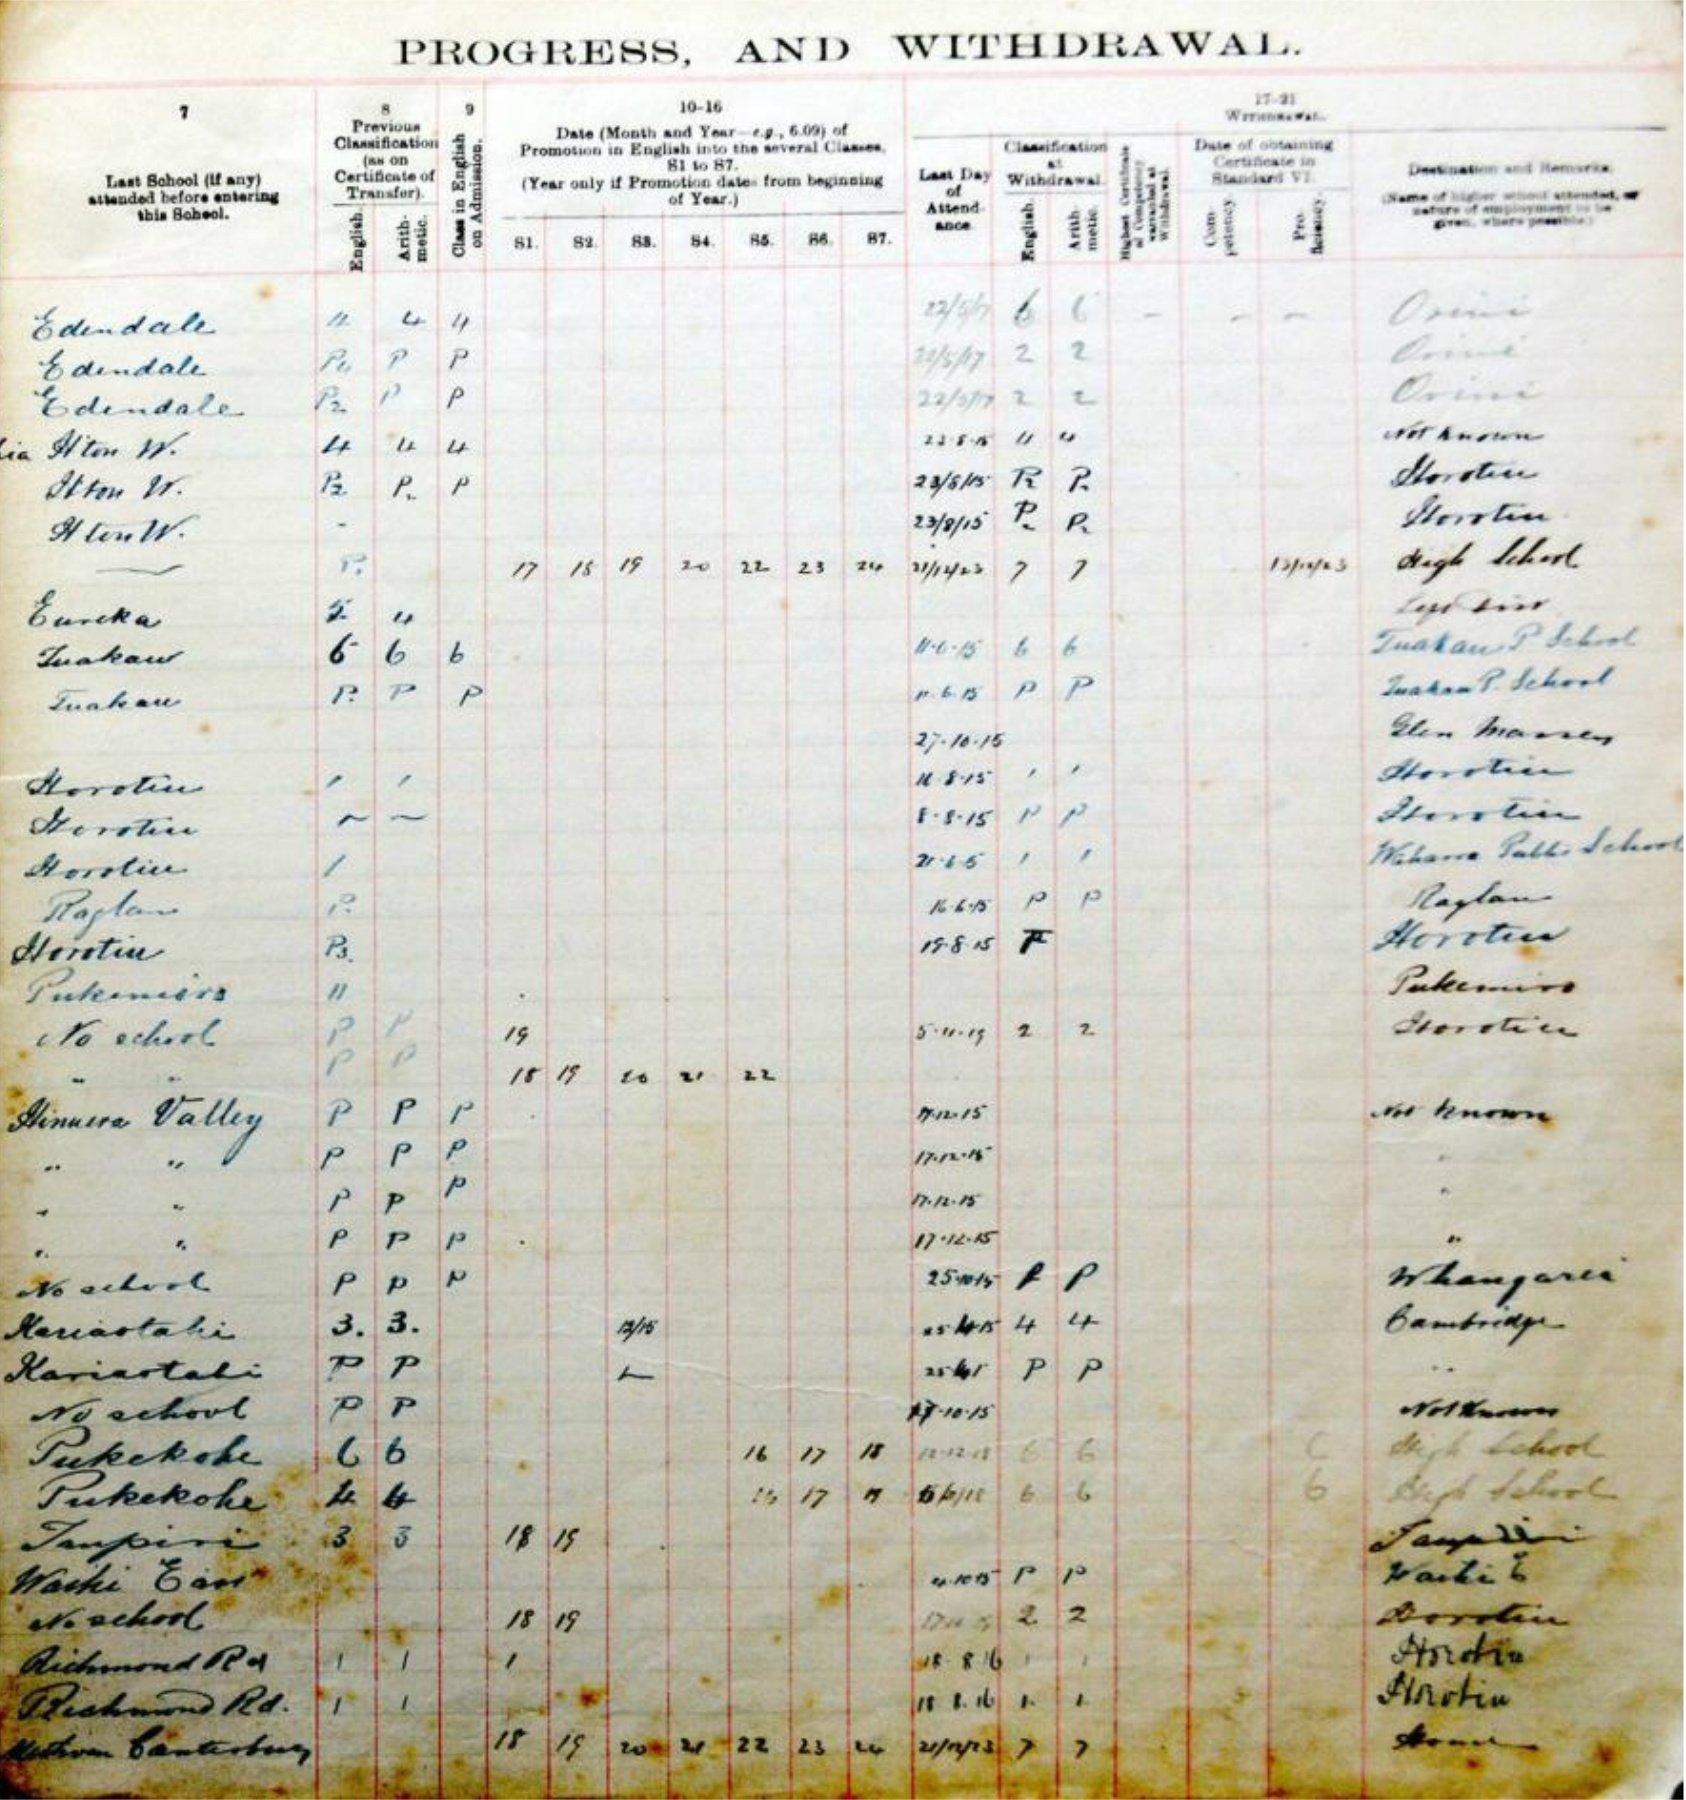 PROGRESS, AND WITHDRAWAL.
7 8 9 10-16 17-21
Last School (if any) attended before entering this School.
Previous Classification (as on Certificate of Transfer).
English. Arithmetic.
Class in English on Admission.
Date (Month and Year—e.g., 6.09) of Promotion in English into the several Classes, S1 to S7.
(Year only if Promotion dates from beginning of Year.)
S1. S2. S3. S4. S5. S6. S7.
WITHDRAWAL.
Last Day of Attendance
Classification at Withdrawal.
English. Arithmetic.
Highest Certificate of Competency warranted at Withdrawal.
Date of obtaining Certificate in Standard VI.
Competency. Proficiency.
Destination and Remarks.
(Name of higher school attended, or nature of employment to be given, where possible.)
Edendale 4 4 22/5/17 6 6 - - - Orini
Edendale P P 22/5/17 2 2 Orini
Edendale P2 P P 22/5/17 2 2 Orini
H'ton W. 4 4 4 4 4 Not known
H'ton W. P2 P. P 23/8/15 P2 P. Horotiu
H'ton W. - 23/8/15 P. Horotiu
P. 17 18 19 20 22 23 24 21/12/23 7 7 High School
Eureka 4
Tuakau 6 6 6 11-6-15 6 6 Tuakau P School
Tuakau P. P P 11.6.15 P P Tuakau P. School
27-10-15 Glen Massey
Horotiu 8-15 Horotiu
Horotiu ~ ~ 8-8-15 P P Horotiu
Horotiu Public School
Raglan P. 16-6-15 P P Raglan
Horotiu P3. 19-8-15 Horotiu
Pukemiro 11 Pukemiro
No school P P 19 5-11-19 2 2 Horotiu
" " P P 18 19 20 21 22
Hinuera Valley P P P 17-12-15 Not known
" " P P P 17-12-15 "
" " P P P 17-12-15 "
" " P P P 17-12-15 "
No school P P P 25-10-15 P P Whangarei
Kariaotahi 3. 3. 12/15 4 4 Cambridge
Kariaotahi P P P P "
No school P P 10-15 Not Known
Pukekohe 6 6 16 17 18 6 6 C High School
Pukekohe 4 4 17 6 6 6 High School
Taupiri 3 3 18 19 Taupiri
Waihi East 10-15 P P Waihi E
No school 18 19 2 2 Horotiu
Richmond Rd 1 1 1 18 8 16 1 1 Horotiu
Richmond Rd. 1 1 18 8.16 1. 1. Horotiu
Methven Canterbury 18 19 20 21 22 23 24 21/12/23 7 7 Home